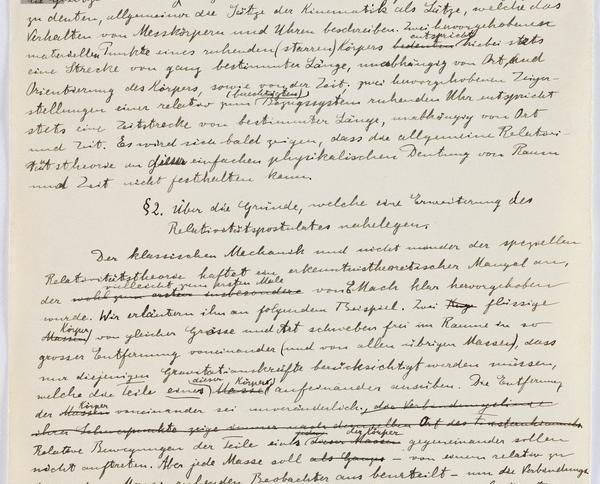 zu deuten, allgemeiner die Sätze der Kinematik als Sätze, welche das
Verhalten von Messkörpern und Uhren beschreiben. Zwei hervorgehobenen
materiellen Punkte eines ruhenden (starren) Körpers bedeuten entspricht hiebei stets
eine Strecke von ganz bestimmter Länge, unabhängig von Ort und
Orientierung des Körpers, sowie von der Zeit; zwei hervorgehobenen Zeiger-
stellungen einer relativ zum (berechtigten) Bezugssystem ruhenden Uhr entspricht
stets eine Zeitstrecke von bestimmter Länge, unabhängig von Ort
und Zeit. Es wird sich bald zeigen, dass die allgemeine Relativi-
tätstheorie an dieser einfachen physikalischen Deutung von Raum
und Zeit nicht festhalten kann.
§2. Über die Gründe, welche eine Erweiterung des
Relativitätspostulates nahelegen.
Der klassischen Mechanik und nicht minder der speziellen
Relativitätstheorie haftet ein erkenntnistheoretischer Mangel an,
vielleicht zum ersten Male
der von E. Mach klar hervorgehoben
wurde. Wir erläutern ihn an folgendem Beispiel. Zwei flüssige
Körper
Massen von gleicher Grösse und Art schweben frei im Raume in so
grosser Entfernung voneinander (und von allen übrigen Massen), dass
nur diejenigen Gravitationskräfte berücksichtigt werden müssen,
dieser Körper
welche die Teile eines Masse aufeinander ausüben. Die Entfernung
Körper
der Massen voneinander sei unveränderlich, die Verbindungslinie
ihrer Schwerpunkte zeige immer nach demselben Ort des
der Körper
Relative Bewegungen der Teile eines dieser Massen gegeneinander sollen
nicht auftreten. Aber jede Masse soll als Ganzes – von einem relativ zu
ruhenden Beobachter aus beurteilt – um die Verbindungs-